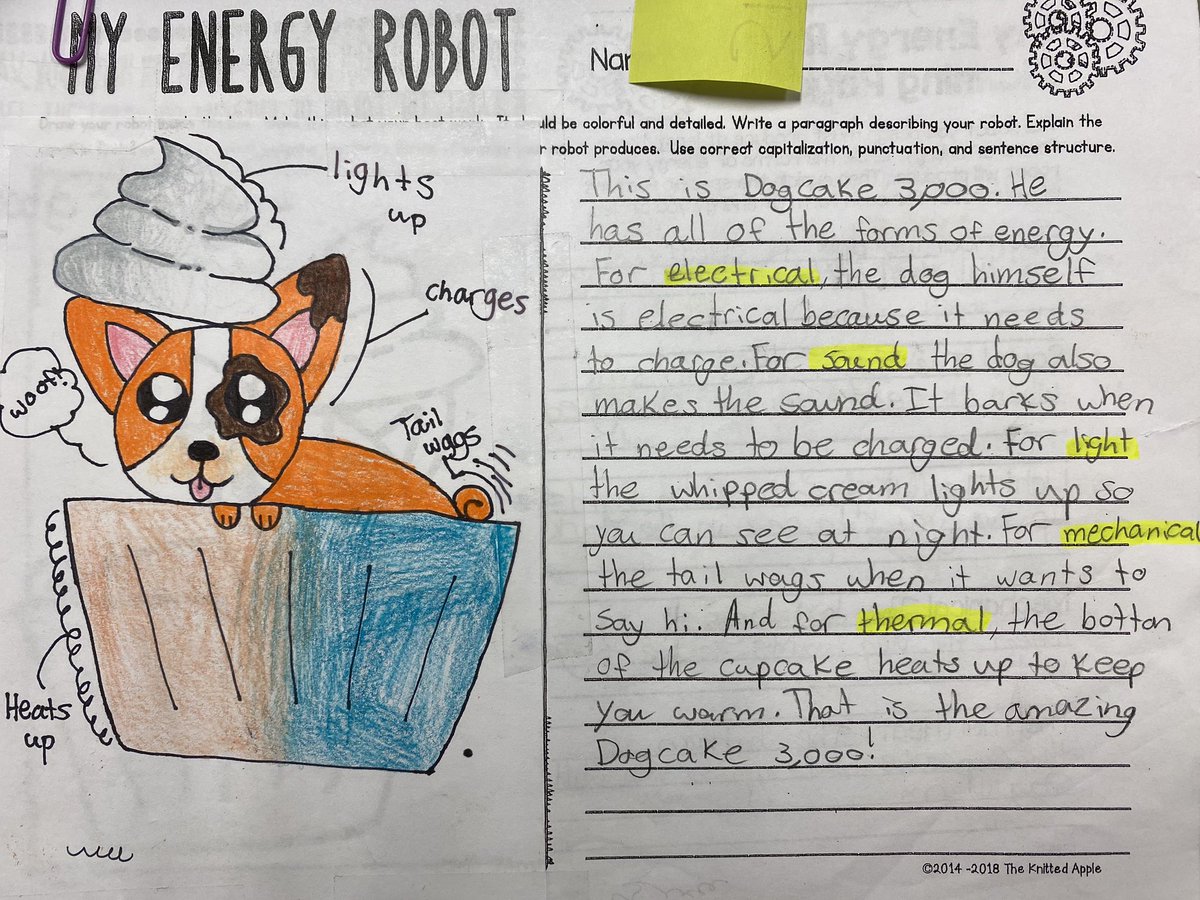 MY ENERGY ROBOT
Nar
uld be colorful and detailed. Write a paragraph describing your robot. Explain the
r robot produces. Use correct capitalization, punctuation, and sentence structure.
lights
up
charges
woof!
Tail
wags
Heats
up
This is Dogcake 3,000. He
has all of the forms of energy.
For electrical, the dog himself
is electrical because it needs
to charge. For sound the dog also
makes the sound. It barks when
it needs to be charged. For light
the whipped cream lights up so
you can see at night. For mechanical
the tail wags when it wants to
say hi. And for thermal, the botton
of the cupcake heats up to keep
you warm. That is the amazing
Dogcake 3,000!
©2014 -2018 The Knitted Apple